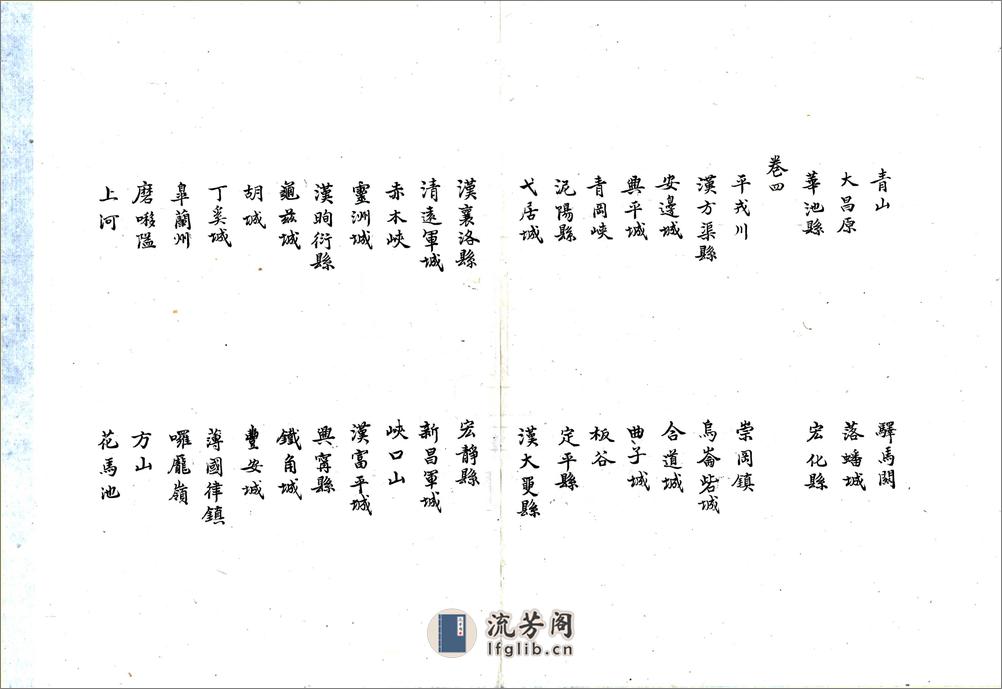 青山　驛馬關
大昌原　落蟠城
華池縣　宏化縣
卷四
平戎川　崇岡鎮
漢方渠縣　烏崙砦城
安邊城　合道城
興平城　曲子城
青岡峽　板谷
泥陽縣　定平縣
弋居城　漢大㚅縣
漢襄洛縣　宏靜縣
清遠軍城　新昌軍城
赤木峽　峽口山
靈洲城　漢富平城
漢昫衍縣　興寧縣
龜茲城　鐵角城
胡城　豐安城
丁奚城　薄國律鎮
皐蘭州　囉龐嶺
磨㗫隘　方山
上河　花馬池
流芳阁
lfglib.cn